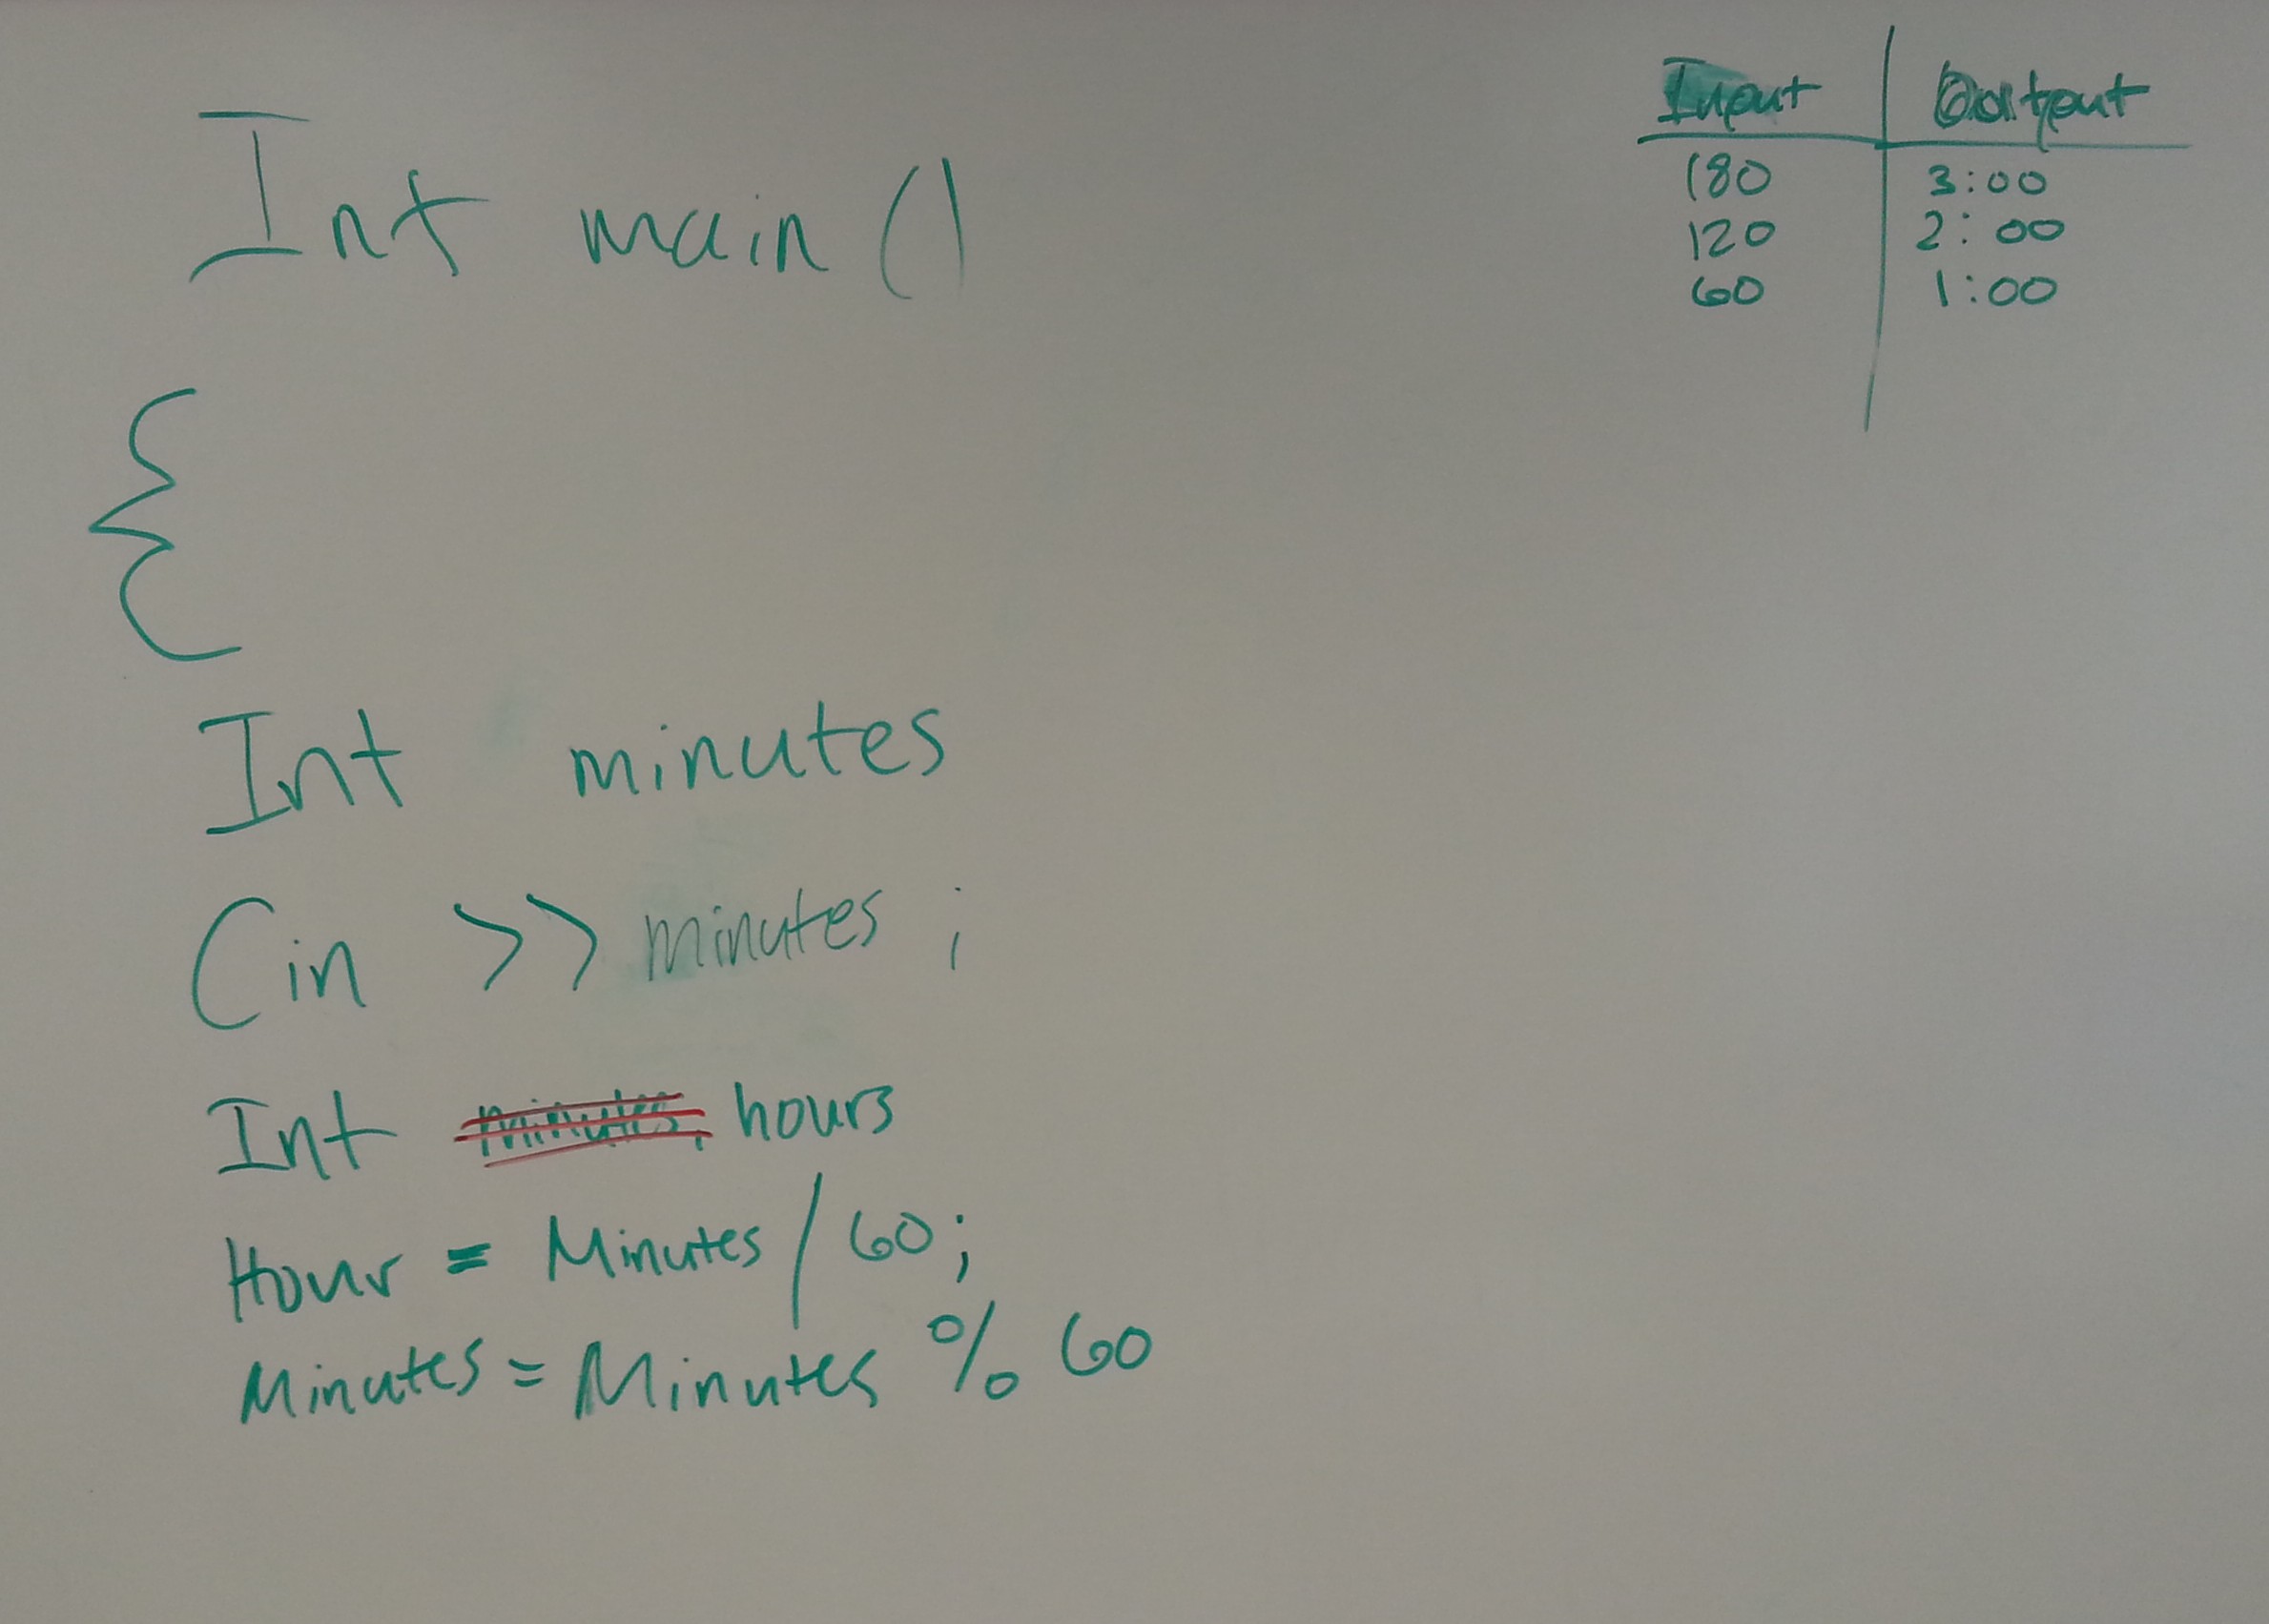 Int main ()
{
Int minutes
Cin >> minutes ;
Int minutes, hours
Hour = Minutes / 60;
Minutes = Minutes % 60
Input Output
180 3:00
120 2:00
60 1:00